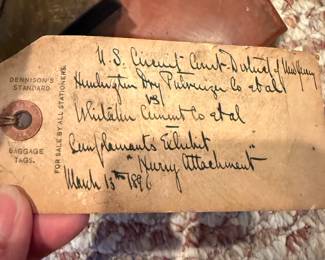 DENNISON'S
STANDARD
BAGGAGE
TAGS.
FOR SALE BY ALL STATIONERS.
U.S. Circuit Court District of New Jersey
Huntington Dry Pulverizer Co et als
vs
Whitaker Cement Co et al
Complainants Exhibit
"Hurry Attachment"
March 13th 1896